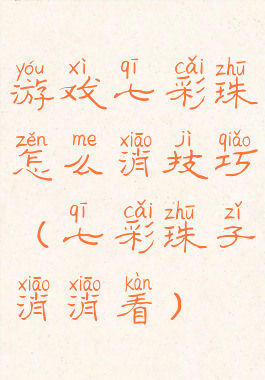 yóu xì qī cǎi zhū
游戏七彩珠
zěn me xiāo jì qiǎo
怎么消技巧
qī cǎi zhū zǐ
(七彩珠子
xiāo xiāo kàn
消消看)